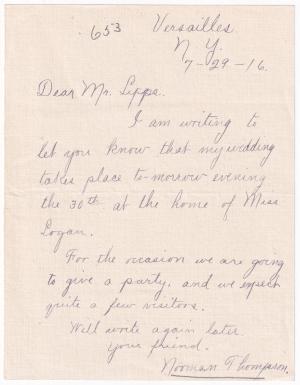 653
Versailles.
N. Y.
7-29-16.
Dear Mr. Lippe.
I am writing to
let you know that my wedding
takes place to-morrow evening
the 30th at the home of Miss
Logan.
For the occasion we are going
to give a party, and we expect
quite a few visitors.
Will write again later.
Your friend.
Norman Thompson.